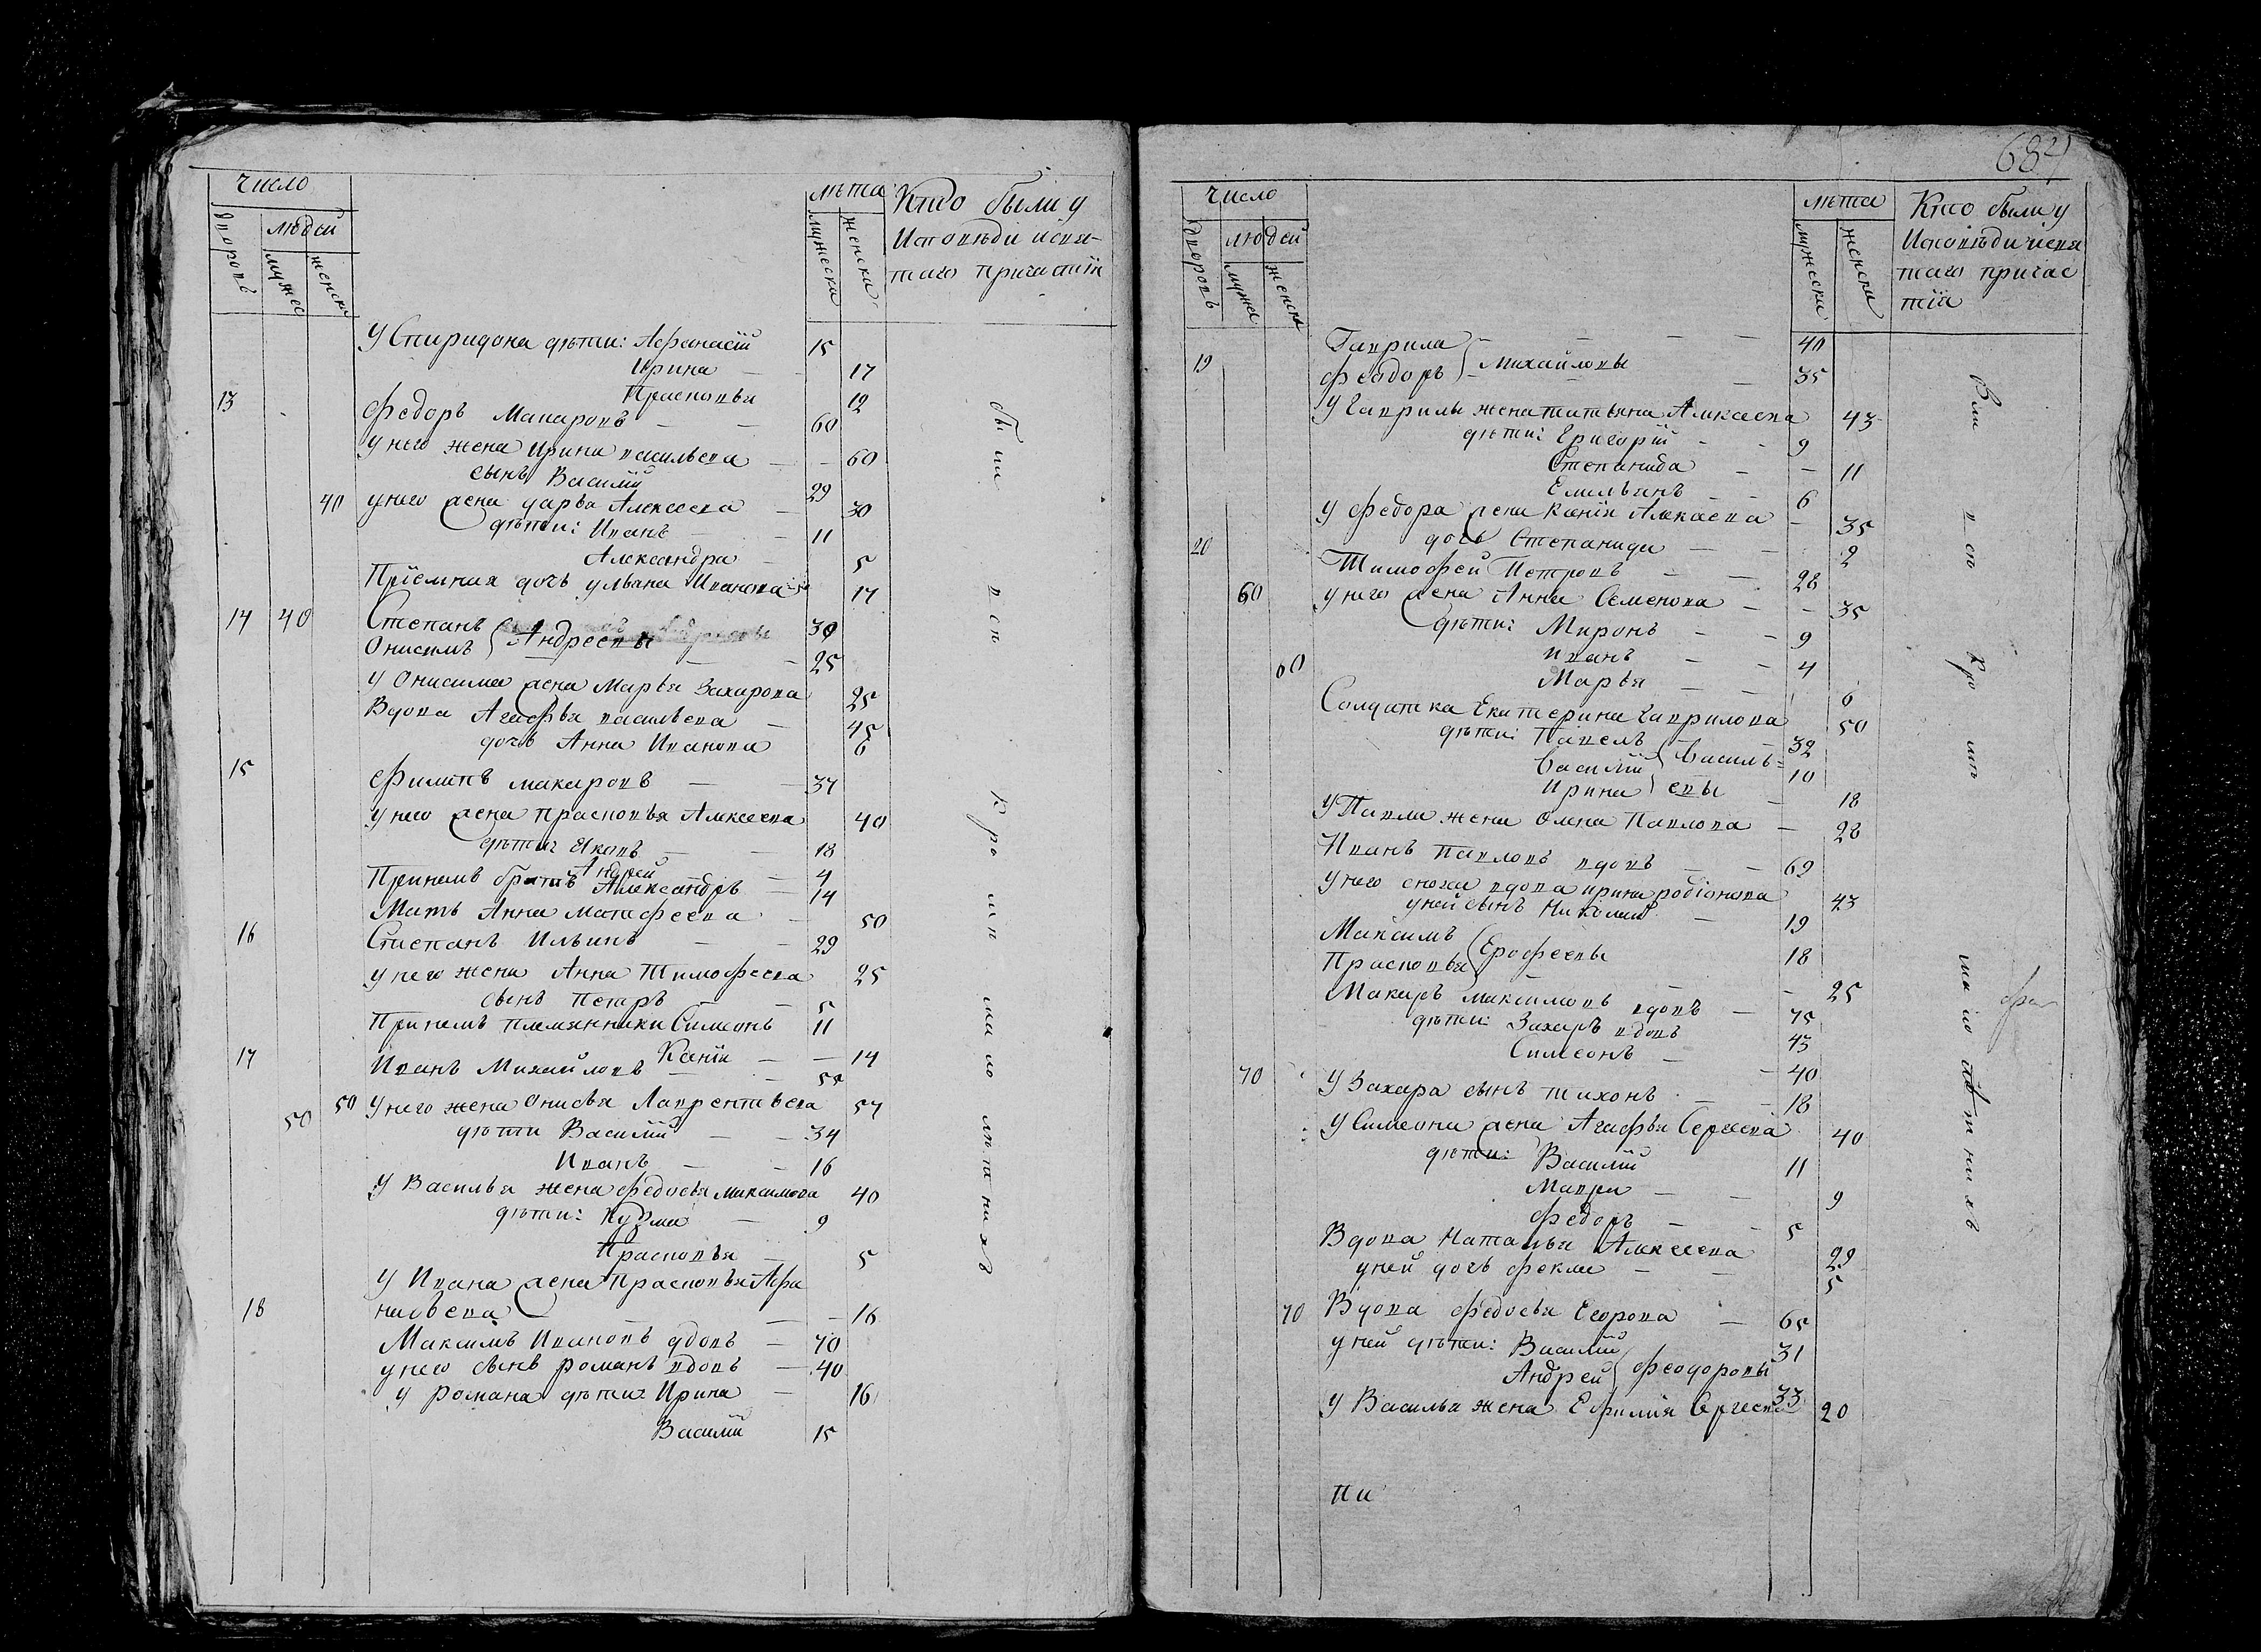 число
дворовъ
людей
мужес
женски
лѣта
мужеска
женска
Кто были у
Исповѣди исвя-
таго причастїя
У Спиридона дѣти: Афанасїй 15
Ирина 17
Прасковья 12
13 Федоръ Макаровъ 60
у него жена Ирина васильева 60
сынъ Василїй 29
40 унего жена дарья Алексеева 30
дѣти: Иванъ 11
Александра 5
Прїемная дочь ульана Иванова 17
14 40 Степанъ 30
Онисимъ Андреевы 25
У Онисима жена Марья Захарова 25
Вдова Агафья васильева 45
дочь Анна Иванова 6
15 Филипъ макаровъ 37
у него жена прасковья Алексеева 40
дѣти: Яковъ 18
Андрей 4
Принемъ братъ Александръ 14
Мать Анна Матфеева 50
16 Степанъ Ильинъ 29
у него жена Анна Тимофеева 25
сынъ петаръ 5
При немъ племянники Симеонъ 11
Ксенїя 14
17 Иванъ Михайловъ 55
50 50 У него жена Онисья Лаврентьева 57
дѣти Василїй 34
Иванъ 16
У Василья жена федосья максимова 40
дѣти: Кузма 9
Прасковья 5
У Ивана жена прасковья Афа
насьева 16
18 Максимъ Ивановъ вдовъ 70
у него сынъ романъ вдовъ 40
у романа дѣти: Ирина 16
Василїй 15
были
всѣ
Кро
мѣ
мало
лѣтнихъ
684
число
дворовъ
людей
мужес
женски
лѣта
мужеска
женска
Кто были у
Исповѣди исвя
таго причас
тїя
19 Гаврила 40
Феодоръ Михайловы 35
У гаврилы жена татьяна Алексеева 43
дѣти: Григорїй 9
Степанида 11
Емельянъ 6
У федора жена Ксенїя Алексеева 35
дочь Степанида 2
20 Тимофей Петровъ 28
60 у него жена Анна Семенова 35
дѣти: Миронъ 9
Иванъ 4
60 Марья 6
Солдатка Екатерина гаврилова 50
дѣти: Павелъ 32
Василїй Василь= 10
Ирина евы 18
У Павла жена Олена Павлова 28
Иванъ Павловъ вдовъ 69
у него сноха вдова ирина родїонова 43
уней сынъ Николай 19
Максимъ 18
Прасковья Ерофеевы 25
Макаръ Максимовъ вдовъ 75
дѣти: Захаръ вдовъ 43
Симеонъ 40
70 У Захара сынъ тихонъ 18
У Симеона жена Агафья Сергеева 40
дѣти: Василїй 11
Мавра 9
Федоръ 5
Вдова Наталья Алексеева 29
уней дочь фекла 5
70 Вдова Федосья Егорова 65
у ней дѣти: Василїй 31
Андрей феодоровы 33
У Василья жена Ефимия Сергеева 20
были
всѣ
Кро
мѣ
мало
ни